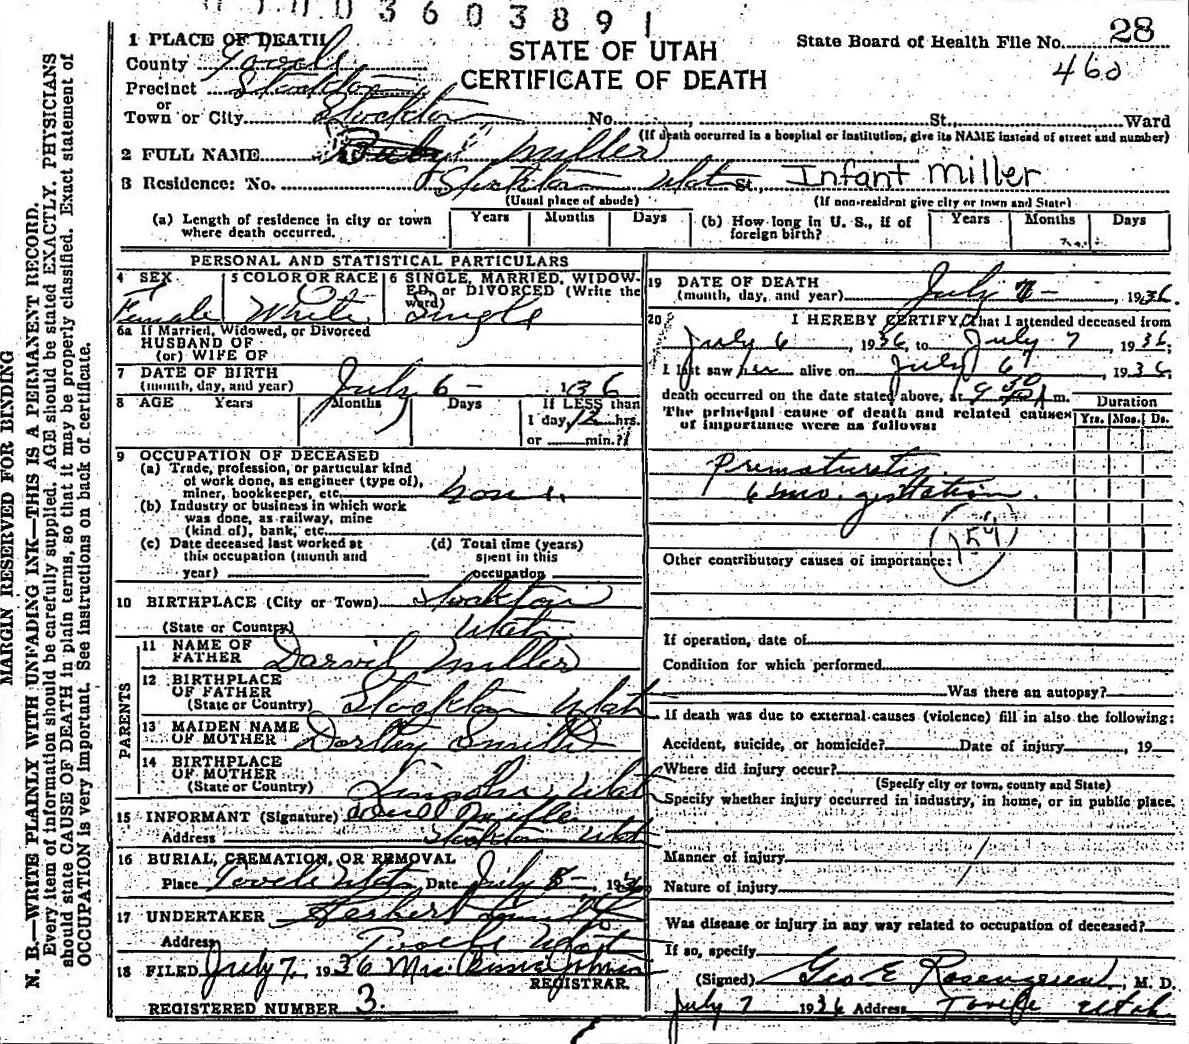 003603891
STATE OF UTAH
CERTIFICATE OF DEATH
State Board of Health File No. 28
460
1 PLACE OF DEATH
County Tooele
Precinct Stockton
or
Town or City Stockton No. , St., Ward
(If death occurred in a hospital or institution, give its NAME instead of street and number)
2 FULL NAME Baby Miller
3 Residence: No. Stockton Utah St., Infant Miller
(Usual place of abode) (If non-resident give city or town and State)
(a) Length of residence in city or town where death occurred. Years Months Days
(b) How long in U. S., if of foreign birth? Years Months Days
PERSONAL AND STATISTICAL PARTICULARS
4 SEX Female
5 COLOR OR RACE White
6 SINGLE, MARRIED, WIDOWED, or DIVORCED (Write the word) Single
6a If Married, Widowed, or Divorced
HUSBAND OF
(or) WIFE OF
7 DATE OF BIRTH
(month, day, and year) July 6- 1936
8 AGE Years Months Days If LESS than
1 day, 12 hrs.
or min.?
9 OCCUPATION OF DECEASED
(a) Trade, profession, or particular kind
of work done, as engineer (type of),
miner, bookkeeper, etc. none
(b) Industry or business in which work
was done, as railway, mine
(kind of), bank, etc.
(c) Date deceased last worked at
this occupation (month and
year)
(d) Total time (years)
spent in this
occupation
10 BIRTHPLACE (City or Town) Stockton
(State or Country) Utah
PARENTS
11 NAME OF
FATHER Darvil Miller
12 BIRTHPLACE
OF FATHER
(State or Country) Stockton Utah
13 MAIDEN NAME
OF MOTHER Smith
14 BIRTHPLACE
OF MOTHER
(State or Country) Lincoln, Utah
15 INFORMANT (Signature) Miller
Address Stockton Utah
16 BURIAL, CREMATION, OR REMOVAL
Place Tooele Utah Date July 8- 1936
17 UNDERTAKER Herbert
Address Tooele Utah
18 FILED July 7, 1936 Mrs.
REGISTRAR.
REGISTERED NUMBER 3.
19 DATE OF DEATH
(month, day, and year) July 7- , 1936
20 I HEREBY CERTIFY, That I attended deceased from
July 6 , 1936 to July 7 , 1936;
I last saw her alive on July 6 , 1936
death occurred on the date stated above, at 9 30 A m.
The principal cause of death and related causes
of importance were as follows:
Duration
Yrs. Mos. Ds.
Prematurety.
6 mo. gestation.
154
Other contributory causes of importance:
If operation, date of
Condition for which performed
Was there an autopsy?
If death was due to external causes (violence) fill in also the following:
Accident, suicide, or homicide? Date of injury , 19
Where did injury occur?
(Specify city or town, county and State)
Specify whether injury occurred in industry, in home, or in public place.
Manner of injury
Nature of injury
Was disease or injury in any way related to occupation of deceased?
If so, specify
(Signed) Geo E , M. D.
July 7 1936 Address Tooele Utah
MARGIN RESERVED FOR BINDING
N. B.—WRITE PLAINLY WITH UNFADING INK—THIS IS A PERMANENT RECORD.
Every item of information should be carefully supplied. AGE should be stated EXACTLY. PHYSICIANS
should state CAUSE OF DEATH in plain terms, so that it may be properly classified. Exact statement of
OCCUPATION is very important. See instructions on back of certificate.